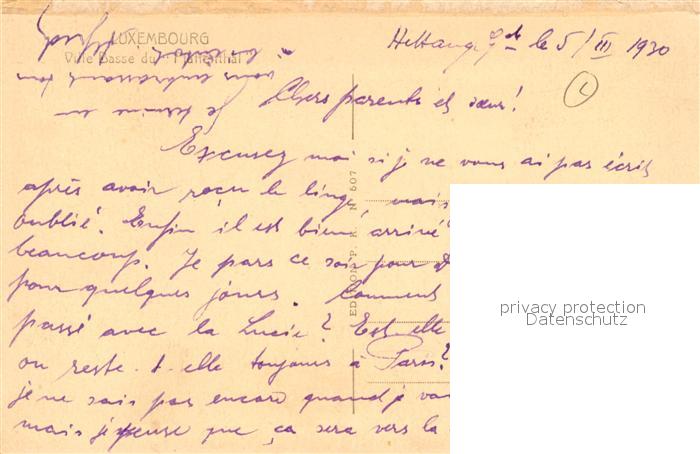 LUXEMBOURG
Ville Basse du Pfaffenthal
Hettange Gde le 5/III 1930
Chers parents et sœur!
Excusez moi si je ne vous ai pas écrit
après avoir reçu le linge, mais
oublié. Enfin il est bien arrivé
beaucoup. Je pars ce soir pour
pour quelques jours. Comment
passé avec la Lucie? Est-elle
ou reste-t-elle toujours à Paris?
je ne sais pas encore quand je
mais je pense que ça sera vers la
Je termine en
vous embrassant tous
à bientôt
EDITION P. K. N. 507
privacy protection
Datenschutz